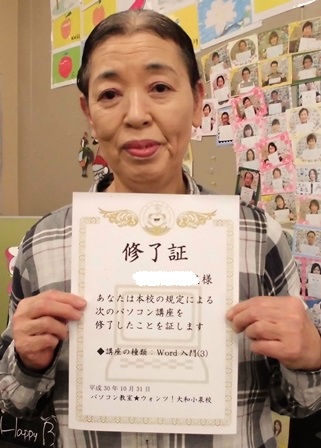 修了証
様
あなたは本校の規定による
次のパソコン講座を
修了したことを証します
◆講座の種類：Word 入門(3)
平成 30 年 10 月 31 日
パソコン教室★ウォンツ！大和小泉校
Happy B